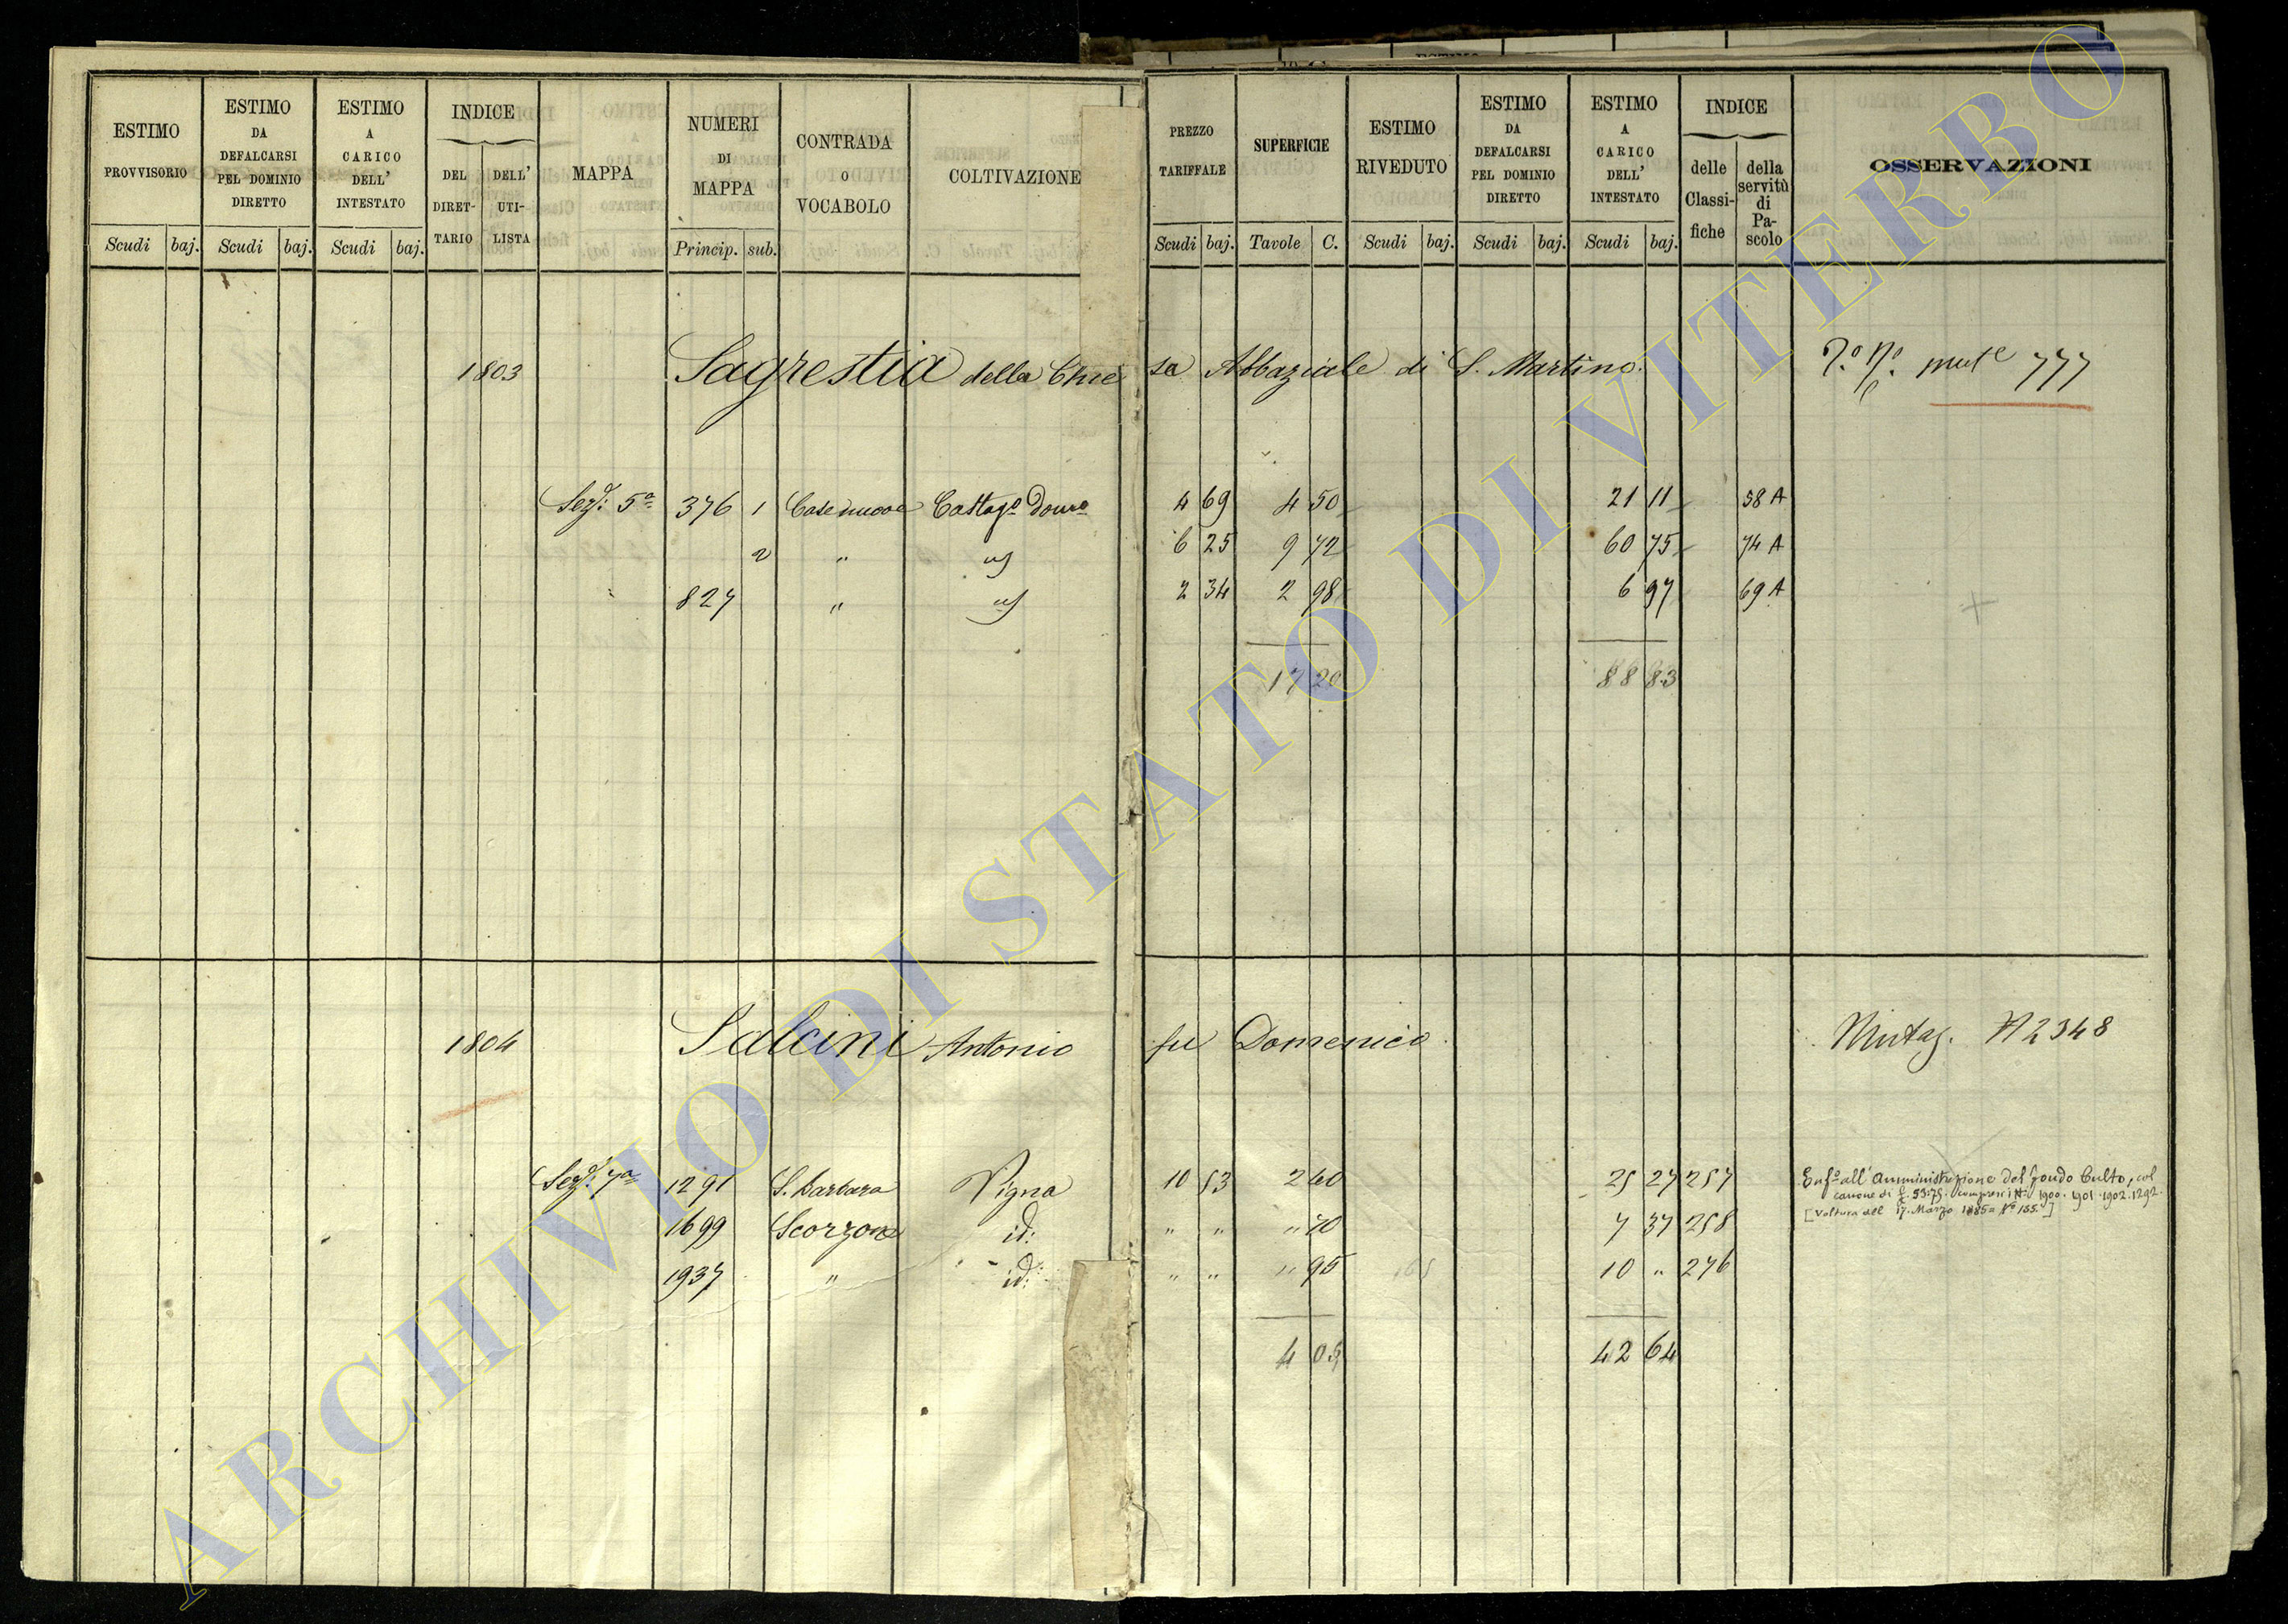 ESTIMO PROVVISORIO Scudi baj.
ESTIMO DA DEFALCARSI PEL DOMINIO DIRETTO Scudi baj.
ESTIMO A CARICO DELL' INTESTATO Scudi baj.
INDICE DEL DIRET-TARIO DELL' UTI-LISTA
MAPPA
NUMERI DI MAPPA Princip. sub.
CONTRADA O VOCABOLO
COLTIVAZIONE
PREZZO TARIFFALE Scudi baj.
SUPERFICIE Tavole C.
ESTIMO RIVEDUTO Scudi baj.
ESTIMO DA DEFALCARSI PEL DOMINIO DIRETTO Scudi baj.
ESTIMO A CARICO DELL' INTESTATO Scudi baj.
INDICE delle Classi-fiche della servitù di Pa-scolo
OSSERVAZIONI
1803 Sagrestia della Chie sa Abbaziale di S. Martino. 777
Sez: 5a 376 1 Casenuove Castago Domo 4 69 4 50 21 11 58 A
2 " id 6 25 9 72 60 75 74 A
827 " id 2 34 2 98 6 97 69 A
17 20 88 83
1804 Salcini Antonio fu Domenico. N 2348
Sez: 7a 1291 S. Barbara Vigna 10 53 2 40 25 27 257 Enfo all'Amministrazione del fondo Culto, col
canone di £ 53:75. compresi Ni 1900. 1901. 1902. 1292.
1699 Scorzone id: " " " 70 7 37 258 [Voltura dell 17. Marzo 1885 = No 155.]
1937 " id: " " " 95 10 " 276
4 05 42 64
ARCHIVIO DI STATO DI VITERBO